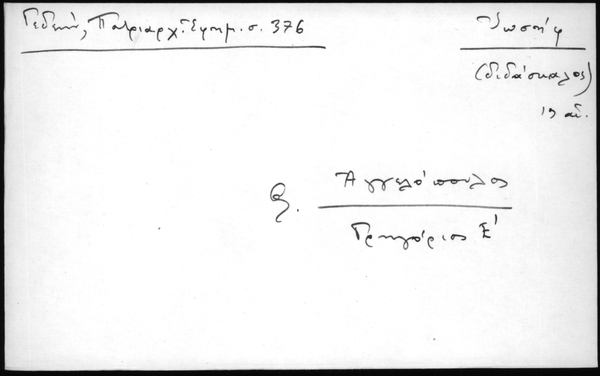 Γεδεών, Πατριαρχ. Ἐφημ. σ. 376
Ἰωσήφ
(διδάσκαλος)
19 αἰ.
Ἀγγελόπουλος
Γρηγόριος Ε'